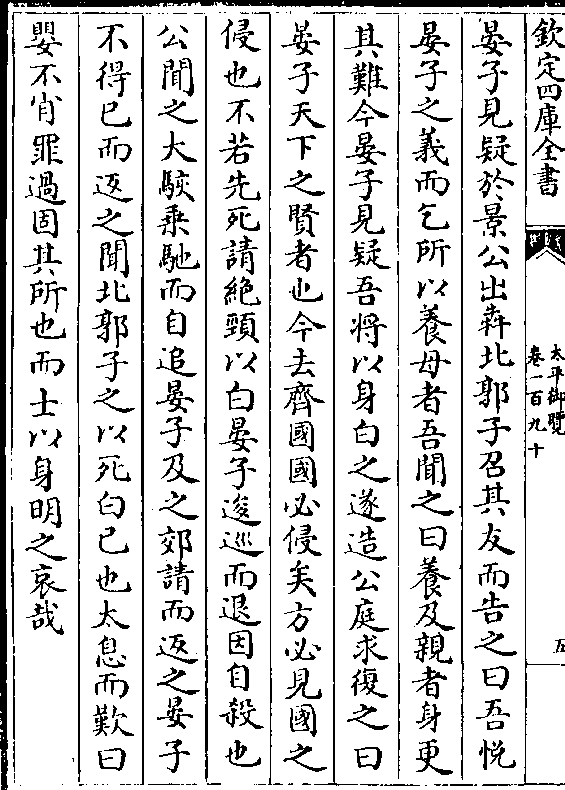 欽定四庫全書
太平御覽
卷一百九十
五
晏子見疑於景公出犇北郭子召其友而告之曰吾悦
晏子之義而乞所以養母者吾聞之曰養及親者身更
其難今晏子見疑吾將以身白之遂造公庭求復之曰
晏子天下之賢者也今去齊國國必侵矣方必見國之
侵也不若先死請絶頸以白晏子逡巡而退因自殺也
公聞之大駭乗馳而自追晏子及之郊請而返之晏子
不得已而返之聞北郭子之以死白已也太息而歎曰
嬰不肖罪過固其所也而士以身明之哀哉